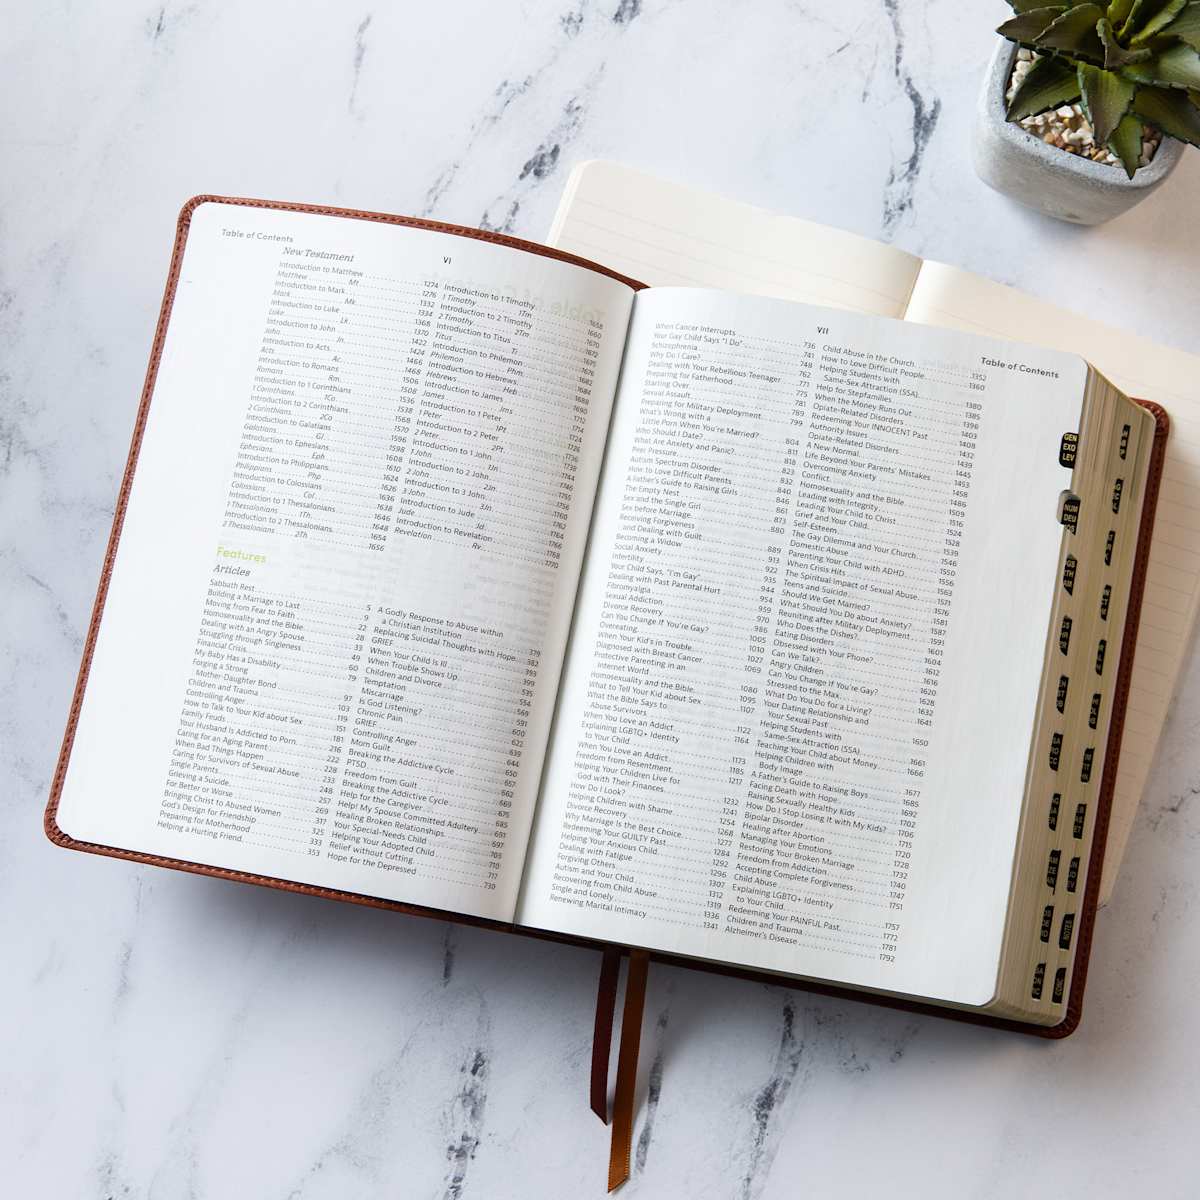 Table of Contents
VI
New Testament
Introduction to Matthew 1274
Matthew Mt 1276
Introduction to Mark 1332
Mark Mk 1334
Introduction to Luke 1368
Luke Lk 1370
Introduction to John 1422
John Jn 1424
Introduction to Acts 1466
Acts Ac 1468
Introduction to Romans 1506
Romans Rm 1508
Introduction to 1 Corinthians 1536
1 Corinthians 1Co 1538
Introduction to 2 Corinthians 1568
2 Corinthians 2Co 1570
Introduction to Galatians 1596
Galatians Gl 1598
Introduction to Ephesians 1608
Ephesians Eph 1610
Introduction to Philippians 1624
Philippians Php 1626
Introduction to Colossians 1636
Colossians Col 1638
Introduction to 1 Thessalonians 1646
1 Thessalonians 1Th 1648
Introduction to 2 Thessalonians 1654
2 Thessalonians 2Th 1656
Introduction to 1 Timothy 1658
1 Timothy 1Tm 1660
Introduction to 2 Timothy 1670
2 Timothy 2Tm 1672
Introduction to Titus 1675
Titus Ti 1676
Introduction to Philemon 1682
Philemon Phm 1684
Introduction to Hebrews 1688
Hebrews Heb 1690
Introduction to James 1712
James Jms 1714
Introduction to 1 Peter 1724
1 Peter 1Pt 1726
Introduction to 2 Peter 1736
2 Peter 2Pt 1738
Introduction to 1 John 1744
1 John 1Jn 1746
Introduction to 2 John 1755
2 John 2Jn 1756
Introduction to 3 John 1760
3 John 3Jn 1762
Introduction to Jude 1764
Jude Jd 1766
Introduction to Revelation 1768
Revelation Rv 1770
Features
Articles
Sabbath Rest 5
Building a Marriage to Last 9
Moving from Fear to Faith 22
Homosexuality and the Bible 28
Dealing with an Angry Spouse 33
Struggling through Singleness 49
Financial Crisis 60
My Baby Has a Disability 79
Forging a Strong
Mother-Daughter Bond 97
Children and Trauma 103
Controlling Anger 119
How to Talk to Your Kid about Sex 151
Family Feuds 181
Your Husband Is Addicted to Porn 216
Caring for an Aging Parent 222
When Bad Things Happen 228
Caring for Survivors of Sexual Abuse 233
Single Parents 248
Grieving a Suicide 257
For Better or Worse 269
Bringing Christ to Abused Women 311
God's Design for Friendship 325
Preparing for Motherhood 333
Helping a Hurting Friend 353
A Godly Response to Abuse within
a Christian Institution 379
Replacing Suicidal Thoughts with Hope 382
GRIEF 393
When Your Child Is Ill 399
When Trouble Shows Up 535
Children and Divorce 554
Temptation 569
Miscarriage 591
Is God Listening? 600
Chronic Pain 622
GRIEF 639
Controlling Anger 644
Mom Guilt 650
Breaking the Addictive Cycle 657
PTSD 662
Freedom from Guilt 669
Breaking the Addictive Cycle 675
Help for the Caregiver 685
Help! My Spouse Committed Adultery 691
Healing Broken Relationships 697
Your Special-Needs Child 703
Helping Your Adopted Child 710
Relief without Cutting 717
Hope for the Depressed 730
VII
Table of Contents
When Cancer Interrupts 736
Your Gay Child Says "I Do" 741
Schizophrenia 748
Why Do I Care? 762
Dealing with Your Rebellious Teenager
Preparing for Fatherhood 775
Starting Over 781
Sexual Assault 789
Preparing for Military Deployment 799
What's Wrong with a
Little Porn When You're Married? 804
Who Should I Date? 811
What Are Anxiety and Panic? 818
Peer Pressure 823
Autism Spectrum Disorder 832
How to Love Difficult Parents 840
A Father's Guide to Raising Girls 846
The Empty Nest 861
Sex and the Single Girl 873
Sex before Marriage 880
Receiving Forgiveness
and Dealing with Guilt 889
Becoming a Widow 913
Social Anxiety 922
Infertility 935
Your Child Says, "I'm Gay" 944
Dealing with Past Parental Hurt 954
Fibromyalgia 959
Sexual Addiction 970
Divorce Recovery 986
Can You Change If You're Gay? 1005
Overeating 1010
When Your Kid's in Trouble 1027
Diagnosed with Breast Cancer 1069
Protective Parenting in an
Internet World 1080
Homosexuality and the Bible 1095
What to Tell Your Kid about Sex 1107
What the Bible Says to
Abuse Survivors 1122
When You Love an Addict 1164
Explaining LGBTQ+ Identity
to Your Child 1173
When You Love an Addict 1185
Freedom from Resentment 1217
Helping Your Children Live for
God with Their Finances 1232
How Do I Look? 1241
Helping Children with Shame 1254
Divorce Recovery 1268
Why Marriage Is the Best Choice 1277
Redeeming Your GUILTY Past 1284
Helping Your Anxious Child 1292
Dealing with Fatigue 1296
Forgiving Others 1307
Autism and Your Child 1312
Recovering from Child Abuse 1319
Single and Lonely 1336
Renewing Marital Intimacy 1341
Child Abuse in the Church 1352
How to Love Difficult People 1360
Helping Students with
Same-Sex Attraction (SSA) 1380
Help for Stepfamilies 1385
When the Money Runs Out 1396
Opiate-Related Disorders 1403
Redeeming Your INNOCENT Past 1408
Authority Issues 1432
Opiate-Related Disorders 1439
A New Normal 1445
Life Beyond Your Parents' Mistakes 1453
Overcoming Anxiety 1458
Conflict 1486
Homosexuality and the Bible 1509
Leading with Integrity 1516
Leading Your Child to Christ 1524
Grief and Your Child 1528
Self-Esteem 1539
The Gay Dilemma and Your Church 1546
Domestic Abuse 1550
Parenting Your Child with ADHD 1556
When Crisis Hits 1563
The Spiritual Impact of Sexual Abuse 1571
Teens and Suicide 1576
Should We Get Married? 1581
What Should You Do about Anxiety? 1587
Reuniting after Military Deployment 1593
Who Does the Dishes? 1601
Eating Disorders 1604
Obsessed with Your Phone? 1612
Can We Talk? 1616
Angry Children 1620
Can You Change If You're Gay? 1628
Stressed to the Max 1632
What Do You Do for a Living? 1641
Your Dating Relationship and
Your Sexual Past 1650
Helping Students with
Same-Sex Attraction (SSA) 1661
Teaching Your Child about Money 1666
Helping Children with
Body Image 1677
A Father's Guide to Raising Boys 1685
Facing Death with Hope 1692
Raising Sexually Healthy Kids 1702
How Do I Stop Losing It with My Kids? 1706
Bipolar Disorder 1715
Healing after Abortion 1720
Managing Your Emotions 1728
Restoring Your Broken Marriage 1732
Freedom from Addiction 1740
Accepting Complete Forgiveness 1747
Child Abuse 1751
Explaining LGBTQ+ Identity
to Your Child 1757
Redeeming Your PAINFUL Past 1772
Children and Trauma 1781
Alzheimer's Disease 1792
GEN
EXO
LEV
NUM
DEU
JOS
NOTES
CONC